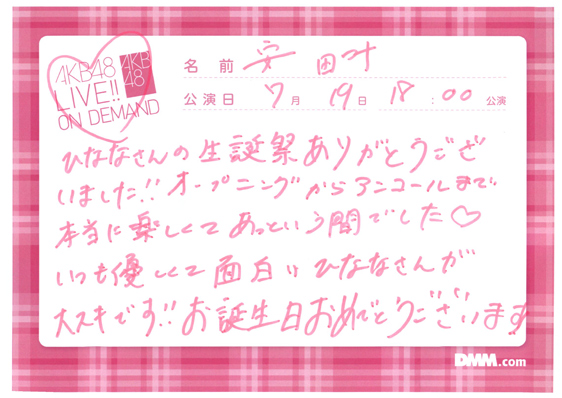 AKB48
LIVE!!
ON DEMAND
AKB
48
名前 安田叶
公演日 7月19日 18:00 公演
ひななさんの生誕祭ありがとうござ
いました!! オープニングからアンコールまで
本当に楽しくてあっという間でした♡
いつも優しくて面白いひななさんが
大スキです!! お誕生日おめでとうございます
DMM.com